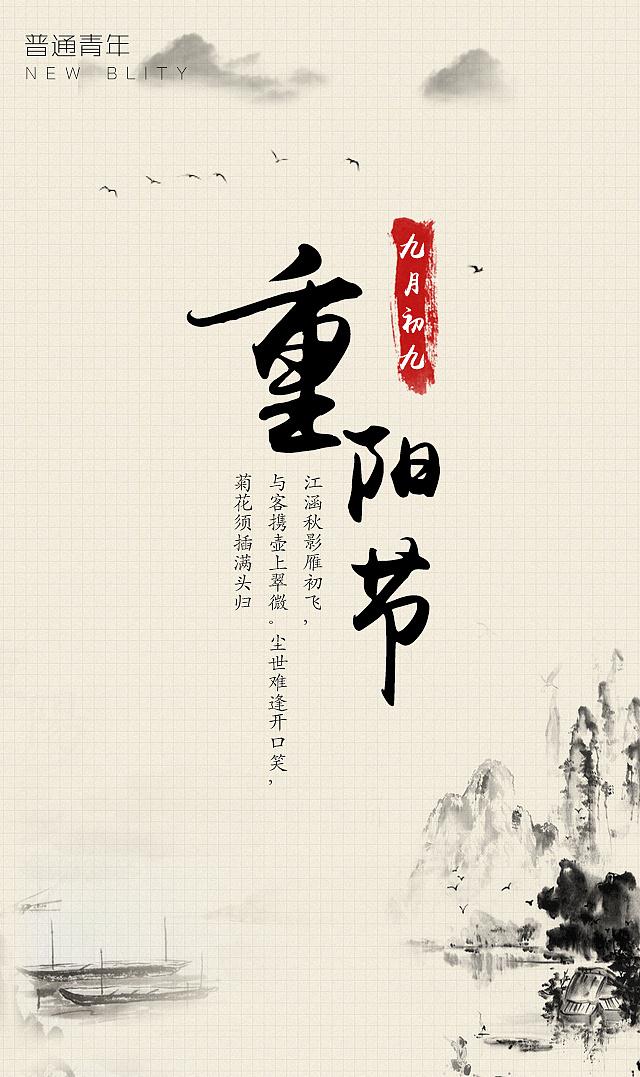 普通青年
NEW BLITY
九月初九
重阳节
江涵秋影雁初飞，
与客携壶上翠微。尘世难逢开口笑，
菊花须插满头归